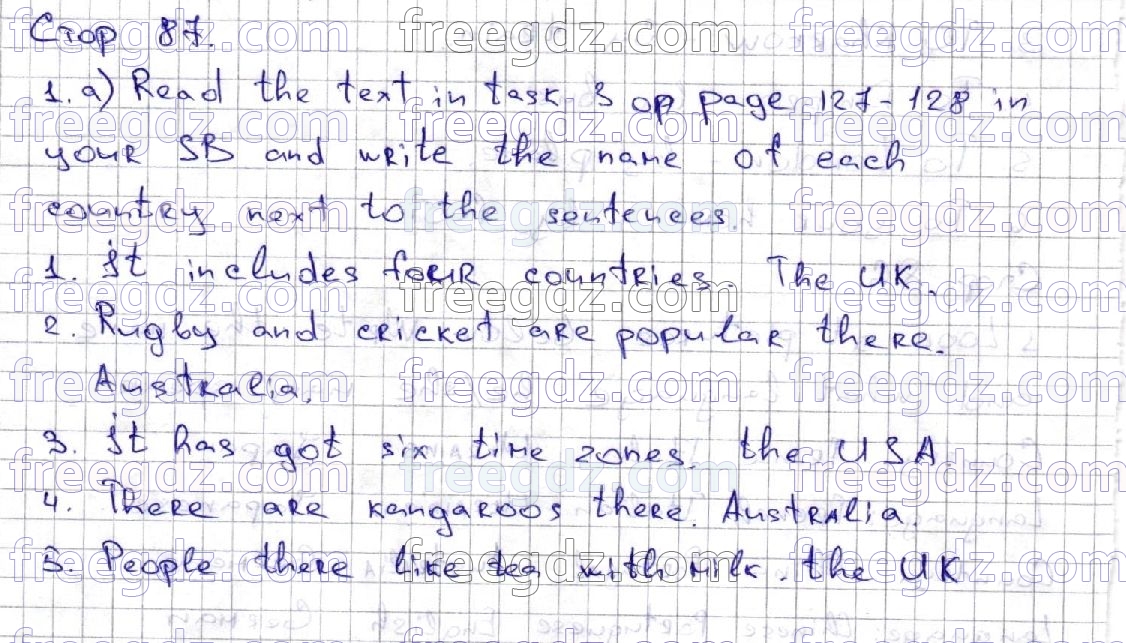 Стор 87.
1. a) Read the text in task 3 op page 127-128 in
your SB and write the name of each
country next to the sentences.
1. It includes four countries. The UK.
2. Rugby and cricket are popular there.
Australia.
3. It has got six time zones. the USA
4. There are kangaroos there. Australia
5. People there like tea with milk. the UK
freegdz.com